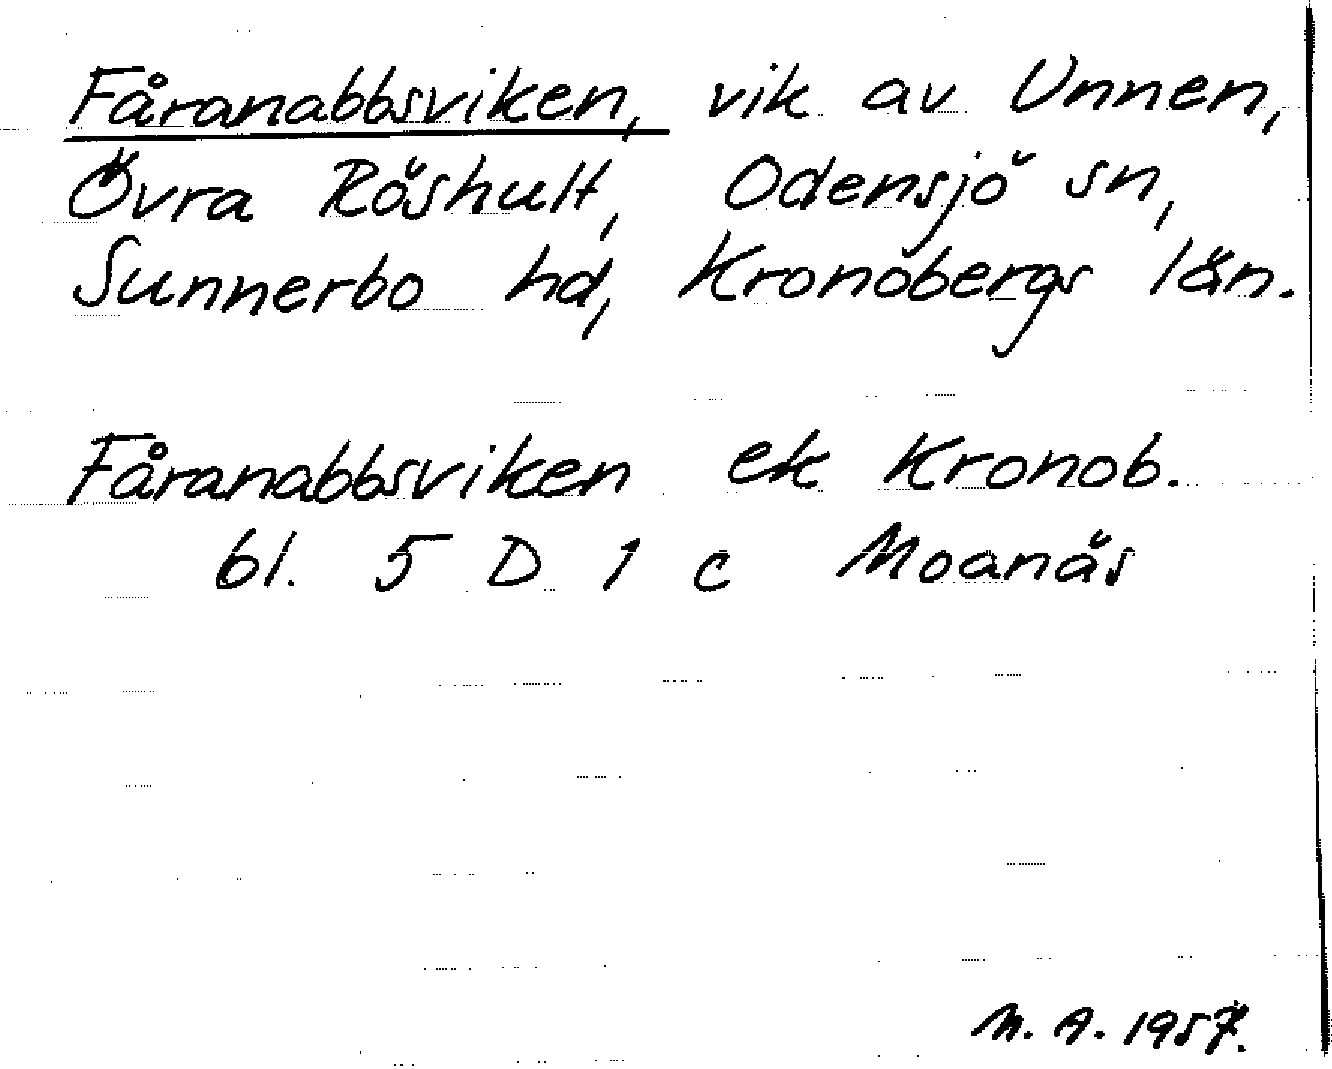 Fåranabbsviken, vik av Unnen,
Övra Röshult, Odensjö sn,
Sunnerbo hd, Kronobergs län.
Fåranabbsviken ek Kronob.
bl. 5 D 1 c Moanäs
M. A. 1957.